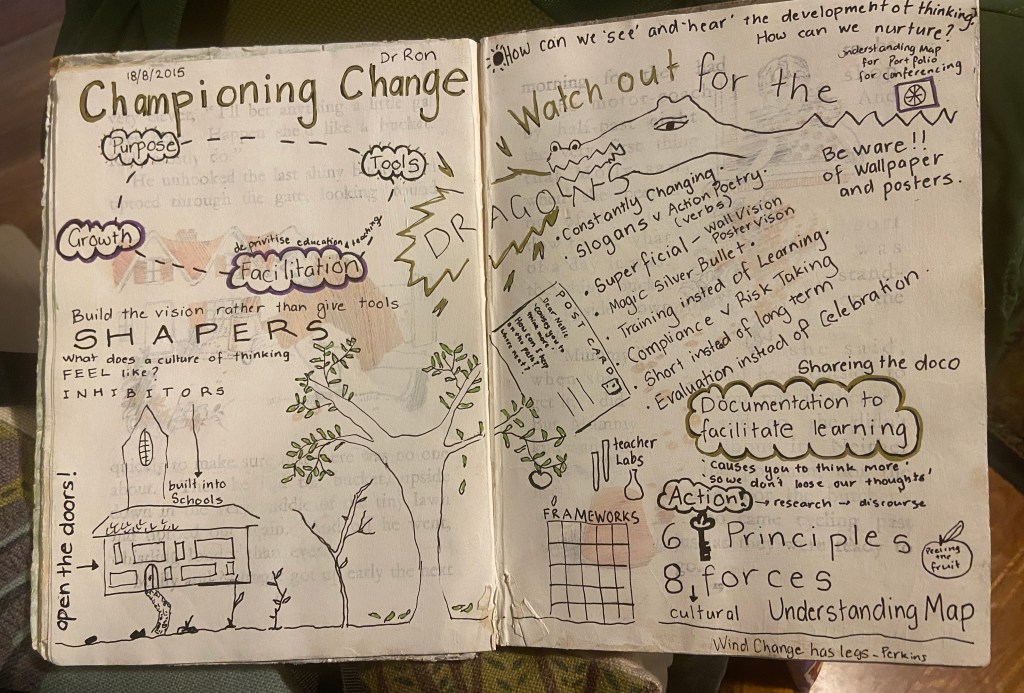 18/8/2015
Dr Ron
Championing Change
Purpose
Tools
Growth
de privitise education & teaching
Facilitation
Build the vision rather than give tools
SHAPERS
What does a culture of thinking
FEEL like?
INHIBITORS
built into
Schools
open the doors!
How can we 'see' and 'hear' the development of thinking?
How can we nurture?
Understanding Map
for Portfolio
for conferencing
Watch out for the
DRAGONS
Beware!!
of wallpaper
and posters.
• Constantly changing.
• Slogans v Action Poetry.
(verbs)
• Superficial - Wall Vision
Poster Vison
• Magic Silver Bullet.
• Training insted of Learning.
• Compliance v Risk Taking
• Short insted of long term
• Evaluation instead of Celebration.
POST CARD
Dear Nellie
How can I help
Shareing the doco
Documentation to
facilitate learning
'causes you to think more'
'so we don't loose our thoughts'
teacher
Labs
Action! → research → discourse
FRAMEWORKS
6 Principles
Peeling
the
fruit
8 forces
cultural
Understanding Map
Wind Change has legs - Perkins